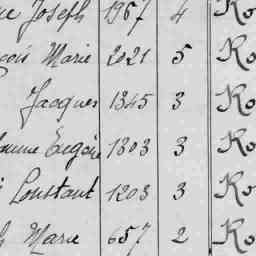 Joseph 1967 4 Ko
Marie 2021 5 Ko
Jacques 1345 3 Ko
Eugène 1303 3 Ko
Constant 1203 3 Ko
Marie 657 2 Ko